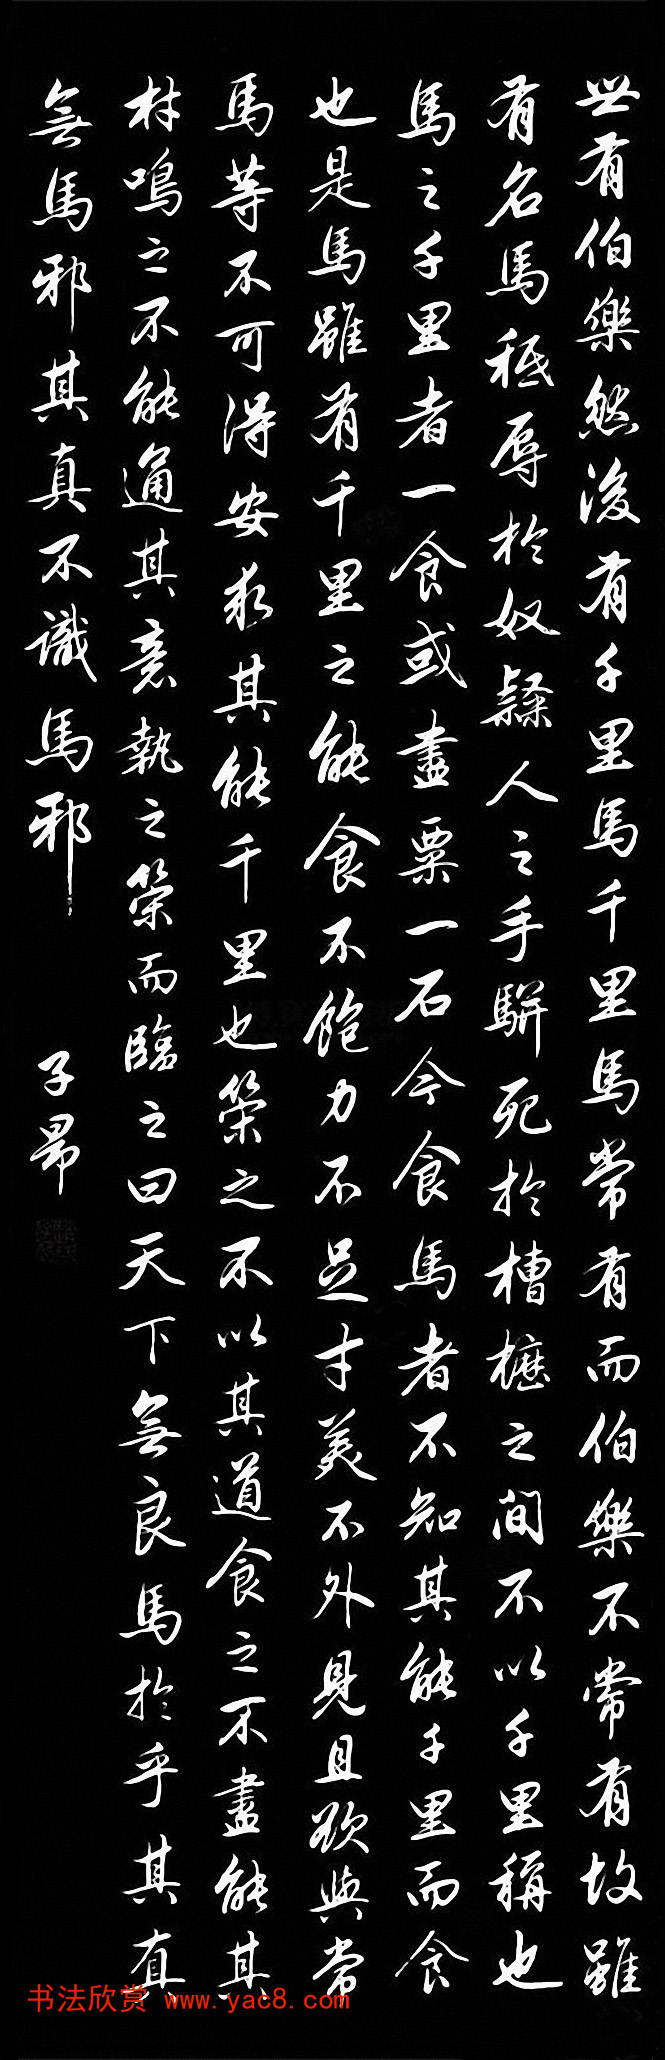 世有伯樂然後有千里馬千里馬常有而伯樂不常有故雖
有名馬秪辱於奴隸人之手駢死於槽櫪之間不以千里稱也
馬之千里者一食或盡粟一石今食馬者不知其能千里而食
也是馬雖有千里之能食不飽力不足才美不外見且欲與常
馬等不可得安求其能千里也策之不以其道食之不盡能其
材鳴之不能通其意執之策而臨之曰天下無良馬於乎其真
無馬邪其真不識馬邪
子昂
书法欣赏 www.yac8.com